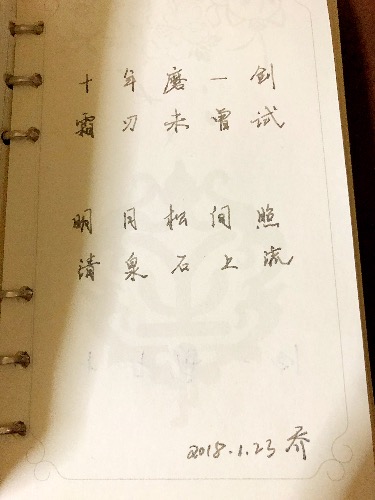 十年磨一剑
霜刃未曾试
明月松间照
清泉石上流
2018.1.23 乔